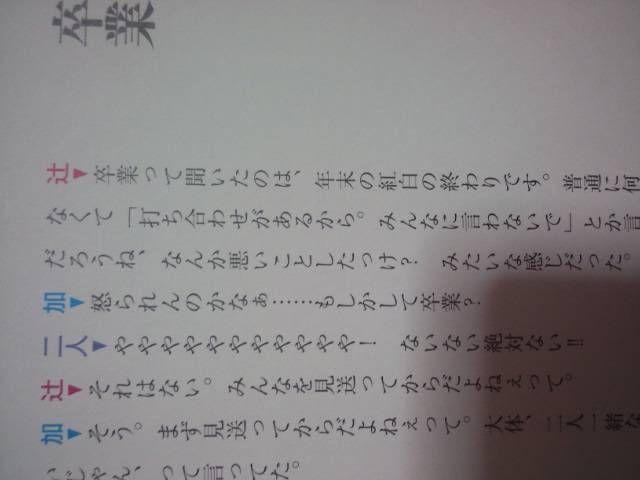 卒業
辻▼卒業って聞いたのは、年末の紅白の終わりです。普通に何
なくて「打ち合わせがあるから。みんなに言わないで」とか言
だろうね、なんか悪いことしたっけ？　みたいな感じだった。
加▼怒られんのかなぁ……もしかして卒業？
二人▼ややややややややややや！　ないない絶対ない!!
辻▼それはない。みんなを見送ってからだよねぇって。
加▼そう。まず見送ってからだよねぇって。大体、二人一緒な
いじゃん、って言ってた。